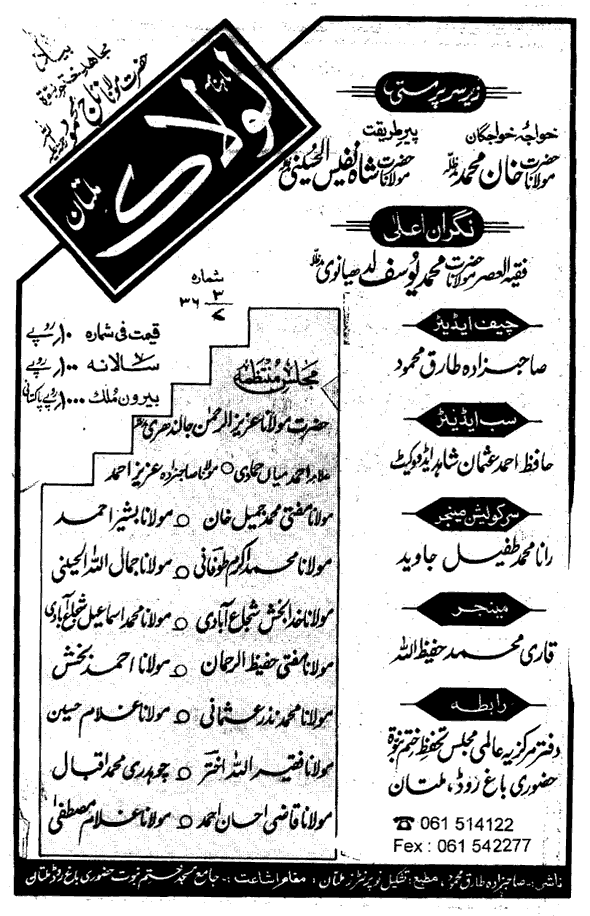 بیاد
مجاھد ختم نبوۃ
حضرت مولانا تاج محمود
ماہنامہ
لولاک
ملتان
زیرسرپرستی
خواجۂ خواجگان
حضرت مولانا خان محمد مدظلہ
پیرِ طریقت
حضرت مولانا شاہ نفیس الحسینی مدظلہ
نگران اعلیٰ
فقیہ العصر حضرت مولانا محمد یوسف لدھیانوی مدظلہ
چیف ایڈیٹر
صاحبزادہ طارق محمود
سب ایڈیٹر
حافظ احمد عثمان شاہد ایڈووکیٹ
سرکولیشن مینجر
رانا محمد طفیل جاوید
مینجر
قاری محمد حفیظ اللہ
رابطہ
دفتر مرکزیہ عالمی مجلس تحفظ ختم نبوۃ
حضوری باغ روڈ، ملتان
☎ 061 514122
Fex : 061 542277
شمارہ
۳
۷ ۳۶
قیمت فی شمارہ ۱۰ روپے
سالانہ ۱۰۰ روپے
بیرون ملک ۱۰۰۰ روپے پاکستانی
مجلس منتظمہ
حضرت مولانا عزیز الرحمٰن جالندھری مدظلہ
علامہ احمد میاں حمادی ○ مولانا صاحبزادہ عزیز احمد
مولانا مفتی محمد جمیل خان ○ مولانا بشیر احمد
مولانا محمد اکرم طوفانی ○ مولانا جمال اللہ الحسینی
مولانا خدا بخش شجاع آبادی ○ مولانا محمد اسماعیل شجاع آبادی
مولانا مفتی حفیظ الرحمان ○ مولانا احمد بخش
مولانا محمد نذر عثمانی ○ مولانا غلام حسین
مولانا فقیر اللہ اختر ○ چوہدری محمد اقبال
مولانا قاضی احسان احمد ○ مولانا غلام مصطفیٰ
ناشر:- صاحبزادہ طارق محمود، مطبع: تشکیل نو پرنٹرز ملتان، مقام اشاعت:- جامع مسجد ختم نبوت حضوری باغ روڈ ملتان